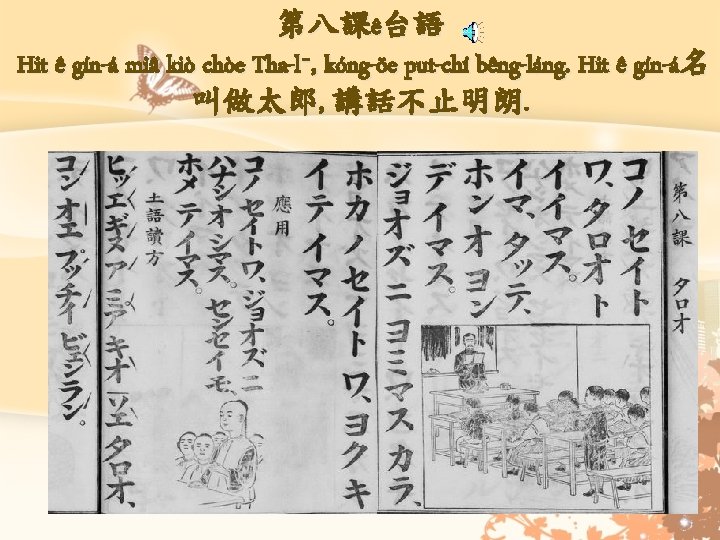 第八課ê台語
Hit ê gín-á miâ kiò chòe Tha-lˉ, kóng-ōe put-chí bêng-láng. Hit ê gín-á名
叫做太郎, 講話不止明朗.
第八課 タロオ
コノ セイト
ワ、タロオ ト
イイマス。
イマ、タッテ、
ホン オ ヨン
デ イマス。
ジョオズ ニ ヨミマス カラ、
ホカ ノ セイト ワ、ヨク キ
イテ イマス。
應用
コノ セイト ワ、ジョオズ ニ
ハナシ オ シマス。 センセイ モ、
ホメテ イマス。
土語讀方
ヒッ エ ギヌ ア ミア キオ ソエ タロオ、
コン オエ プッ チイ ビェン ラン。